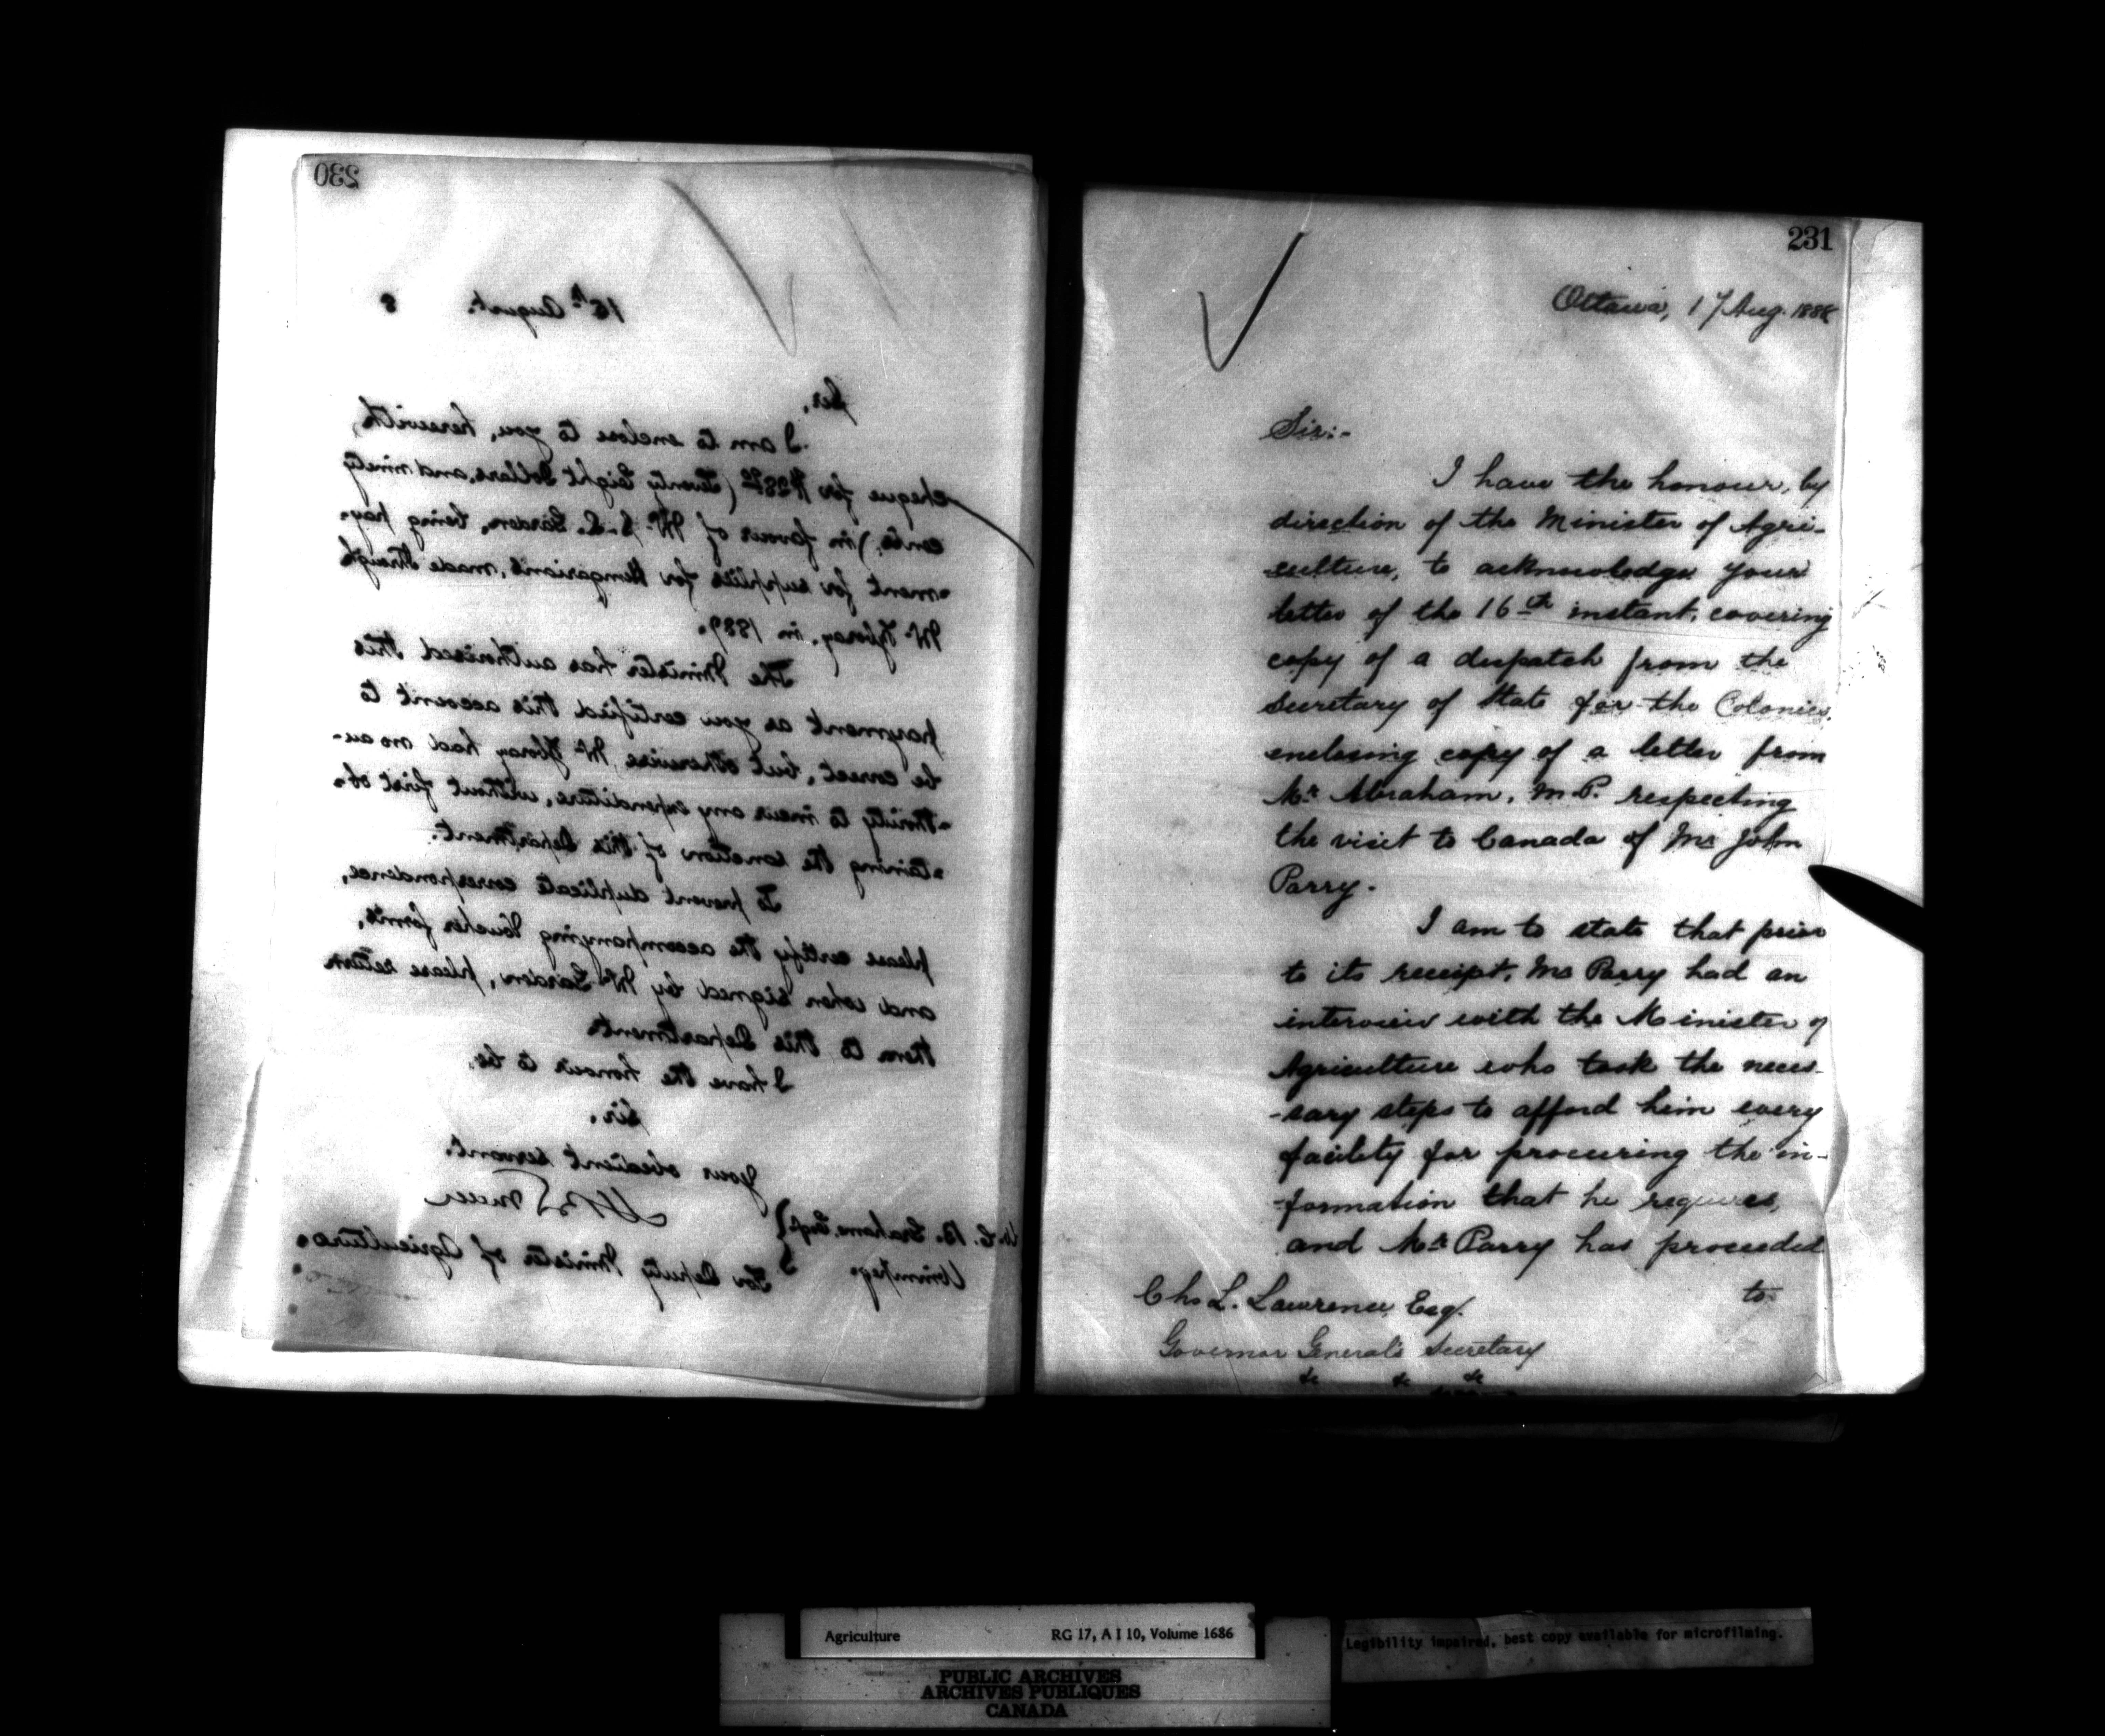 230
16th August. 8
Sir,
I am to enclose to you, herewith,
cheque for $28 90 (Twenty Eight Dollars, and ninety
cents,) in favour of Mr. Garden, being pay-
-ment for supplies for Hungarians, made through
in 1887.
The Minister has authorised this
payment as you certified this account to
be correct, but otherwise, Mr had no au-
-thority to incur any expenditure, without first ob-
-taining the sanction of this Department.
To prevent duplicate correspondence,
please certify the accompanying Voucher forms,
and when signed by Mr Garden, please return
them to this Department
I have the honour to be,
Sir,
Your obedient servant.
For Deputy Minister of Agriculture.
W. C. B. Grahame, Esq.
Winnipeg.
231
Ottawa, 17 Aug. 1888
Sir:-
I have the honour, by
direction of the Minister of Agri-
culture, to acknowledge your
letter of the 16th instant, covering
copy of a despatch from the
Secretary of State for the Colonies,
enclosing copy of a letter from
Mr Abraham, M.P. respecting
the visit to Canada of Mr John
Parry.
I am to state that prior
to its receipt, Mr Parry had an
interview with the Minister of
Agriculture who took the neces-
-sary steps to afford him every
facility for procuring the in-
-formation that he requires,
and Mr Parry has proceeded
to
Chs L. Lawrence, Esq.
Governor General's Secretary
&c &c &c
Agriculture RG 17, A I 10, Volume 1686
Legibility impaired, best copy available for microfilming.
PUBLIC ARCHIVES
ARCHIVES PUBLIQUES
CANADA